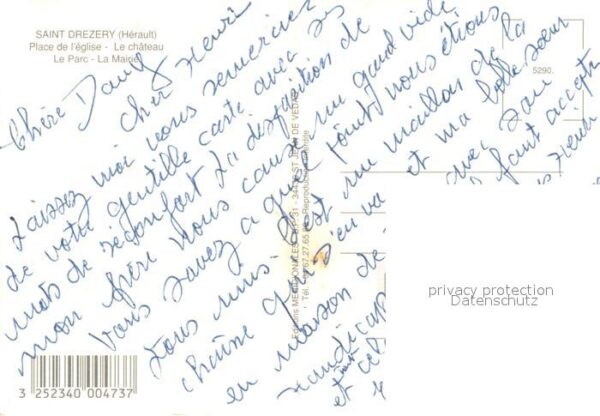 SAINT DREZERY (Hérault)
Place de l'église - Le château
Le Parc - La Mairie
5290.
Chère Dany
cher Henri
Laissez moi vous remercier
de votre gentille carte avec ses
mots de réconfort La disparition de
mon frère nous cause un grand vide
Vous savez à quel point nous étions
tous unis. C'est un maillon de la
chaîne qui s'en va et ma belle sœur
en maison de avec son
handicap faut accepter
et cel
Editions
Tél. 67.27.65 Reproduction interdite
privacy protection
Datenschutz
3 252340 004737